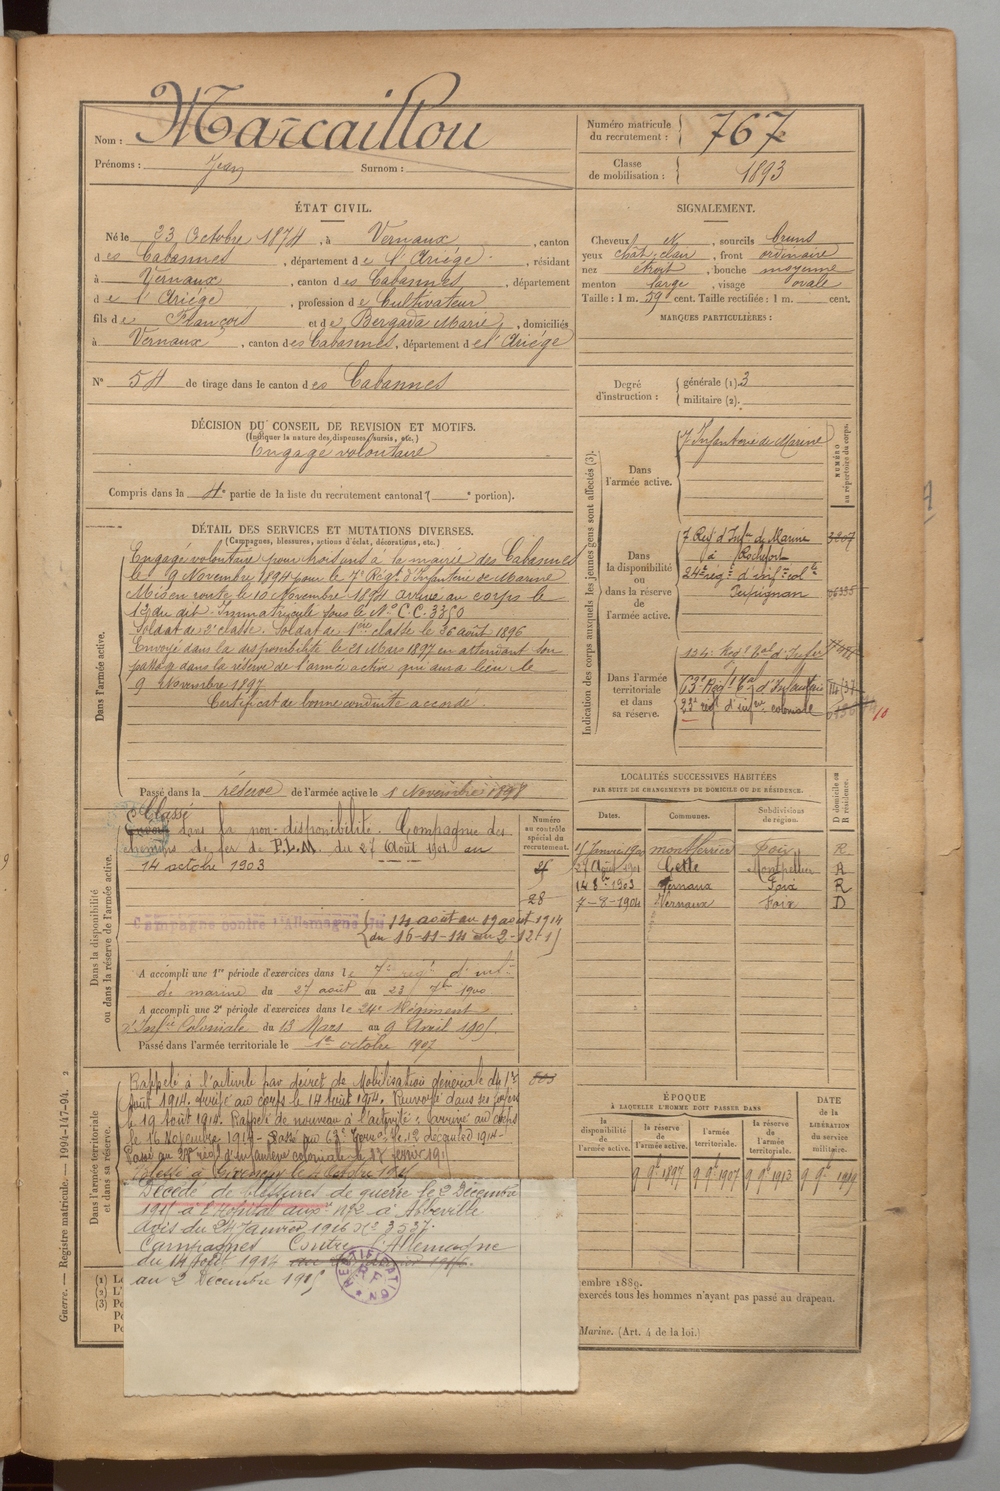 Nom : Marcaillou
Prénoms : Jean Surnom :
Numéro matricule du recrutement : 767
Classe de mobilisation : 1893
ÉTAT CIVIL.
Né le 23 Octobre 1874, à Vernaux, canton
des Cabannes, département de l'Ariége, résidant
à Vernaux, canton des Cabannes, département
de l'Ariége, profession de Cultivateur
fils de François et de Bergada Marie, domiciliés
à Vernaux, canton des Cabannes, département de l'Ariége
N° 54 de tirage dans le canton des Cabannes
SIGNALEMENT.
Cheveux et, sourcils bruns
yeux chât. clair, front ordinaire
nez étroit, bouche moyenne
menton large, visage ovale
Taille : 1 m. 59 cent. Taille rectifiée : 1 m. cent.
MARQUES PARTICULIÈRES :
Degré d'instruction : générale (1) 3
militaire (2).
DÉCISION DU CONSEIL DE REVISION ET MOTIFS.
(Indiquer la nature des dispenses, sursis, etc.)
Engagé volontaire
Compris dans la 4e partie de la liste du recrutement cantonal ( e portion).
DÉTAIL DES SERVICES ET MUTATIONS DIVERSES.
(Campagnes, blessures, actions d'éclat, décorations, etc.)
Dans l'armée active.
Engagé volontaire pour trois ans à la mairie des Cabannes
le 9 Novembre 1894 pour le 7e Régt d'Infanterie de Marine
Mis en route le 10 Novembre 1894 arrivé au corps le
12 du dit Immatriculé sous le N° C.C. 3360
Soldat de 2e classe. Soldat de 1ère classe le 26 août 1896
Envoyé dans la disponibilité le 21 Mars 1897 en attendant son
passage dans la réserve de l'armée active qui aura lieu le
9 Novembre 1897
Certificat de bonne conduite accordé.
Passé dans la réserve de l'armée active le 1 Novembre 1897
Indication des corps auxquels les jeunes gens sont affectés (3).
NUMÉRO au répertoire du corps.
Dans l'armée active.
7 Infanterie de Marine
Dans la disponibilité ou dans la réserve de l'armée active.
7 Regt d'Infie de Marine
à Rochefort
24e régt d'infie colle
Perpignan
Dans l'armée territoriale et dans sa réserve.
63e Régt Tal d'Infanterie
23e régt d'infie coloniale
10
LOCALITÉS SUCCESSIVES HABITÉES
PAR SUITE DE CHANGEMENTS DE DOMICILE OU DE RÉSIDENCE.
Dates. Communes. Subdivisions de région. D domicile ou R résidence.
montferrier Foix R
27 Août 1901 Cette Montpellier R
14 8bre 1903 Vernaux Foix R
7-8-1904 Vernaux Foix D
Dans la disponibilité ou dans la réserve de l'armée active.
Numéro au contrôle spécial du recrutement.
Classé
dans la non-disponibilité. Compagnie des
chemins de fer de P.L.M. du 27 Août 1901 au
14 octobre 1903
28
Campagne contre l'Allemagne du 14 août au 19 août 1914
A accompli une 1re période d'exercices dans le 7e régt d'infie
de marine du 27 août au 23 7bre 1900
A accompli une 2e période d'exercices dans le 24e Régiment
d'Infie Coloniale du 13 Mars au 9 Avril 1905
Passé dans l'armée territoriale le 1er octobre 1907
Dans l'armée territoriale et dans sa réserve.
Rappelé à l'activité par décret de Mobilisation générale du 1er
Août 1914. Arrivé au corps le 14 Août 1914. Renvoyé dans ses foyers
le 19 Août 1914. Rappelé de nouveau à l'activité ; arrivé au corps
le 16 Novembre 1914 - Passé au 63e Terral le 12 décembre 1914 -
Passé au 23e régt d'infanterie coloniale le 17 février 1915
Décédé de blessures de guerre le 2 Décembre
1915 à l'Hôpital aux. N°2 à Abbeville
Avis du 24 Janvier 1916 N° 3537.
Campagnes Contre l'Allemagne
du 14 Août 1914
au 2 Décembre 1915
RECTIFICATION
R F
ÉPOQUE
À LAQUELLE L'HOMME DOIT PASSER DANS
la disponibilité de l'armée active. la réserve de l'armée active. l'armée territoriale. la réserve de l'armée territoriale. DATE de la LIBÉRATION du service militaire.
9 9bre 1897 9 9bre 1907 9 9bre 1913 9 9bre 1919
embre 1889.
exercés tous les hommes n'ayant pas passé au drapeau.
Marine. (Art. 4 de la loi.)
Guerre. — Registre matricule. — 1094-147-94. 2